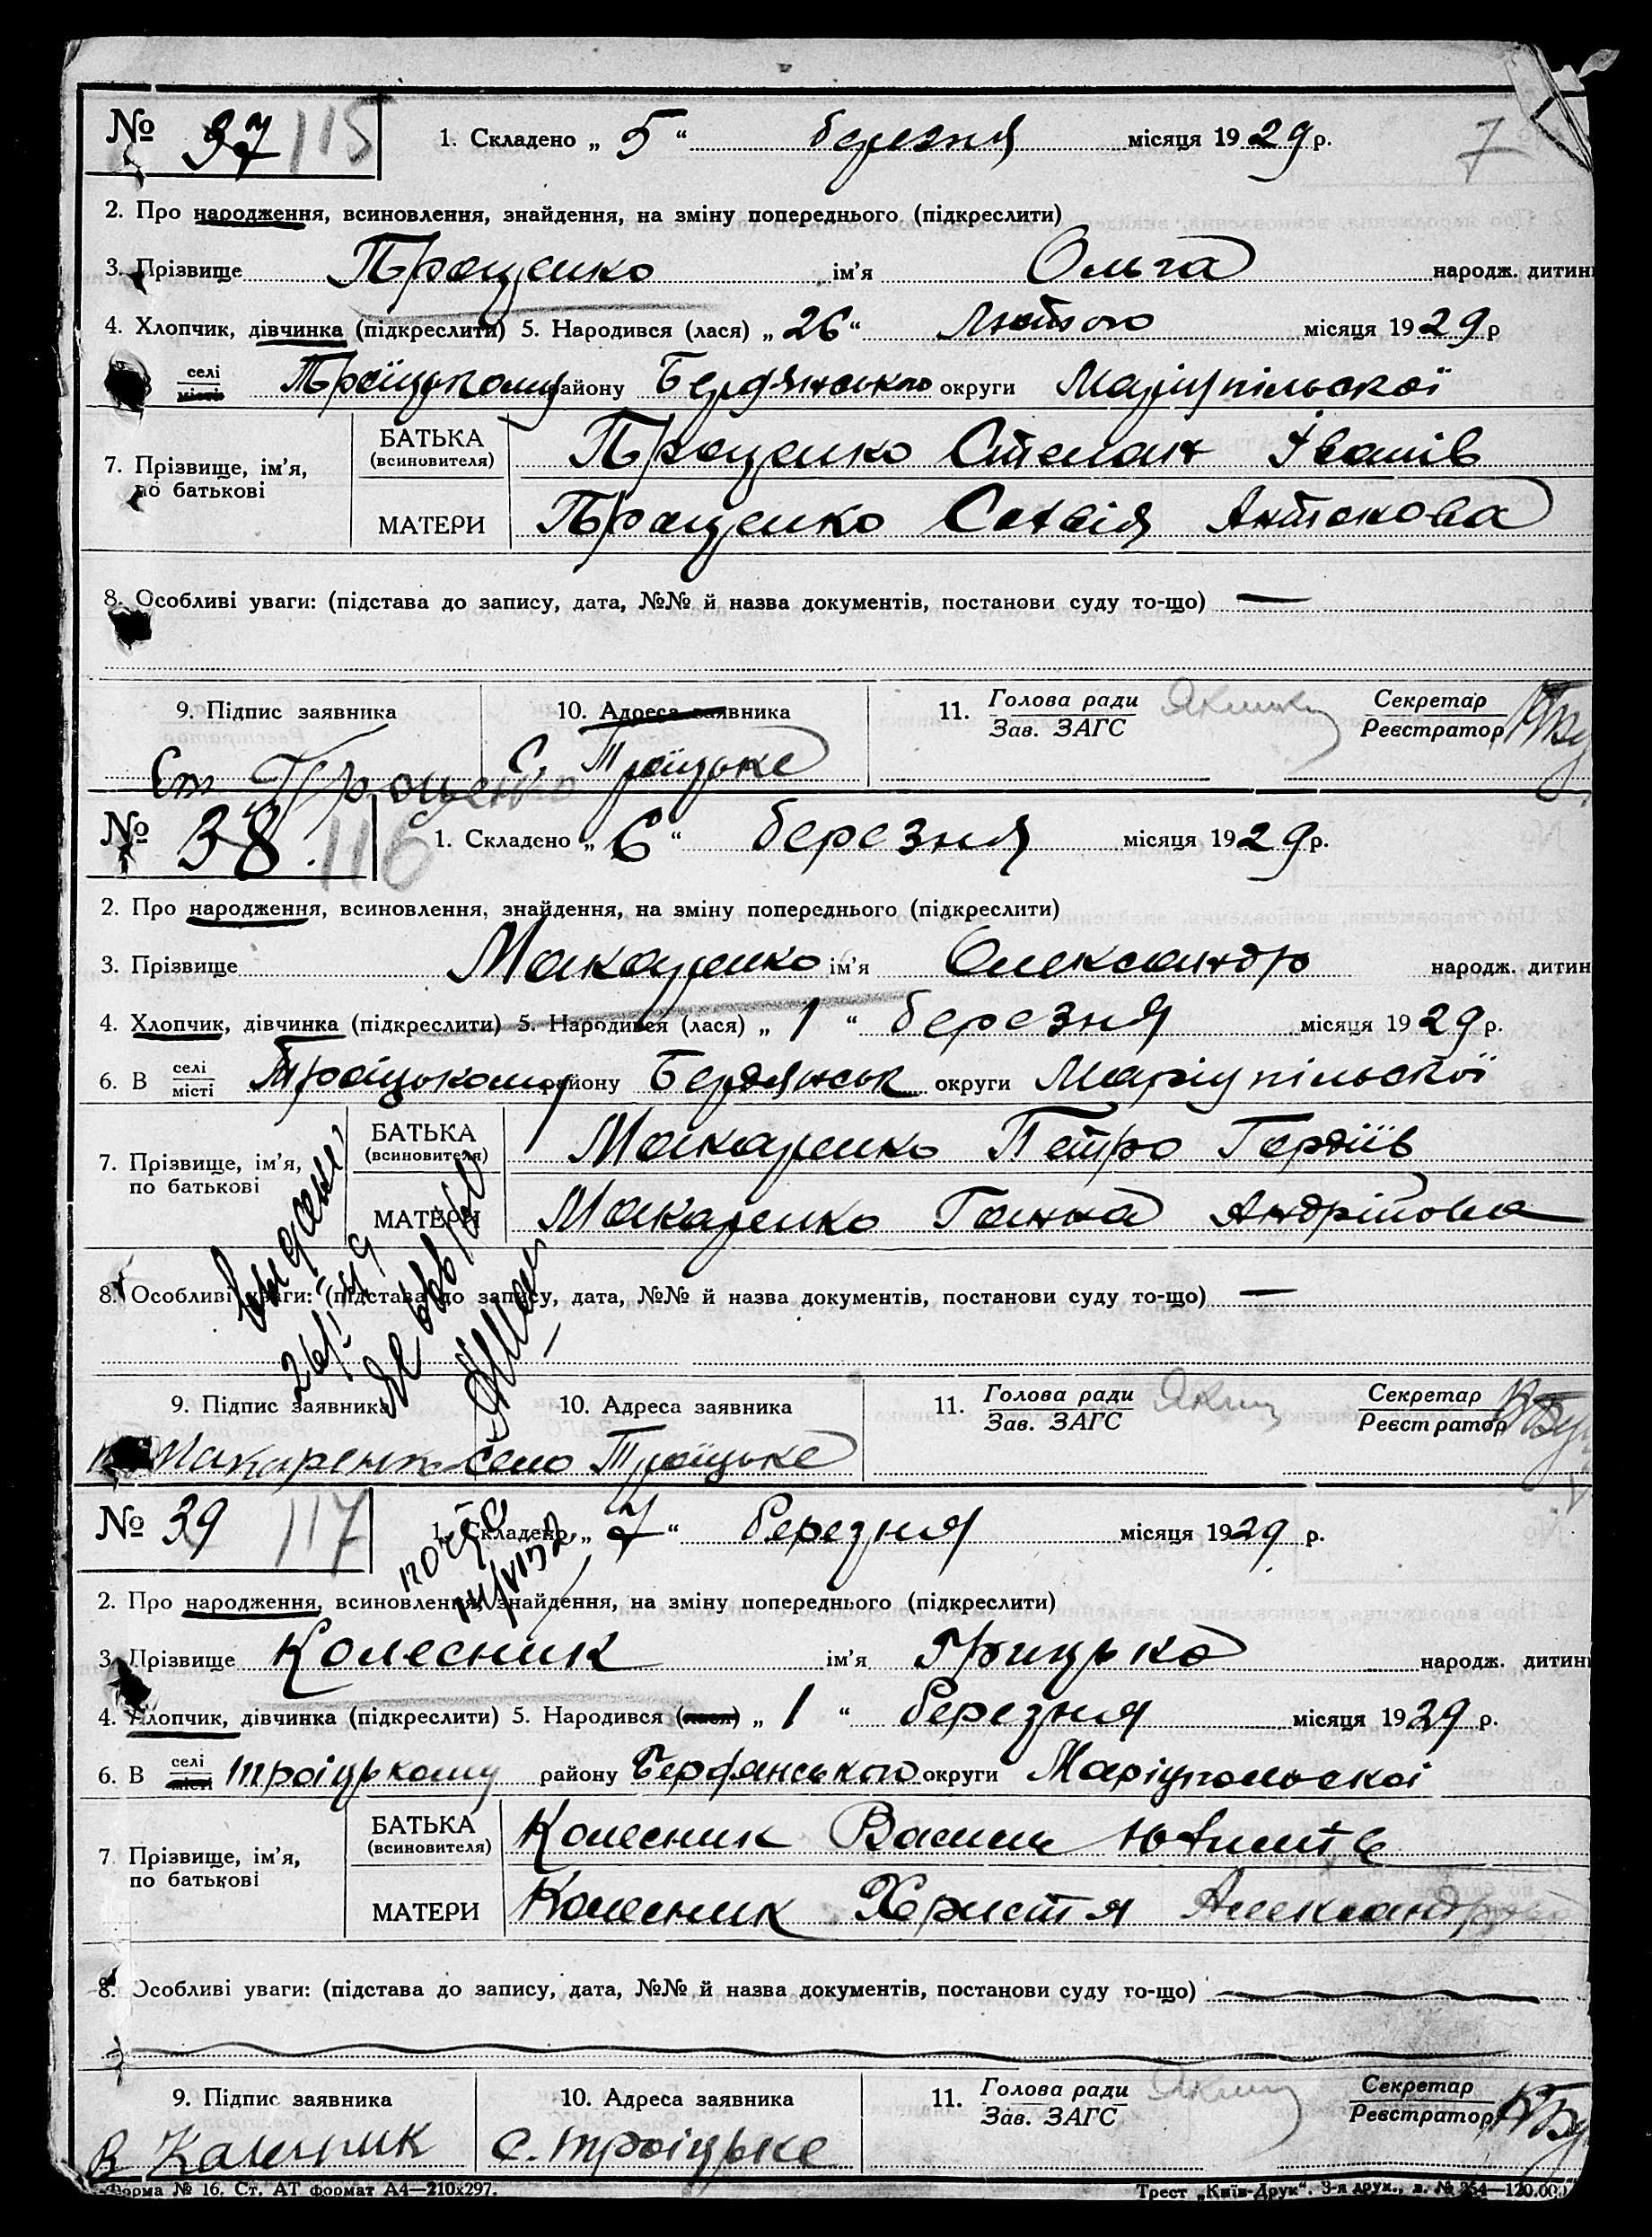 № 37 115 1. Складено „ 5 “ березня місяця 1929 р. 7
2. Про народження, всиновлення, знайдення, на зміну попереднього (підкреслити)
3. Прізвище Проценко ім’я Ольга народж. дитин
4. Хлопчик, дівчинка (підкреслити) 5. Народився (лася) „ 26 “ Лютого місяця 1929 р
селі місті Троїцькому району Бердянського округи Маріупільскої
7. Прізвище, ім’я, по батькові
БАТЬКА (всиновителя) Проценко Степан Іванів
МАТЕРИ Проценко Антонова
8. Особливі уваги: (підстава до запису, дата, №№ й назва документів, постанови суду то-що) —
9. Підпис заявника 10. Адреса заявника 11. Голова ради Зав. ЗАГС Секретар Реєстратор
Ст Проценко С. Троїцьке
№ 38. 116 1. Складено „ 6 “ березня місяця 1929 р.
2. Про народження, всиновлення, знайдення, на зміну попереднього (підкреслити)
3. Прізвище Макаренко ім’я Олександр народж. дитин
4. Хлопчик, дівчинка (підкреслити) 5. Народився (лася) „ 1 “ березня місяця 1929 р.
6. В селі місті Троїцькому району Бердянськ округи Маріупільскої
7. Прізвище, ім’я, по батькові
БАТЬКА (всиновителя) Макаренко Петро Гордіїв
МАТЕРИ Макаренко Ганна Андрійовна
8. Особливі уваги: (підстава до запису, дата, №№ й назва документів, постанови суду то-що) —
9. Підпис заявника 10. Адреса заявника 11. Голова ради Зав. ЗАГС Секретар Реєстратор
Макаренко село Троїцьке
№ 39 117 1. Складено „ 7 “ березня місяця 1929 р.
2. Про народження, всиновлення, знайдення, на зміну попереднього (підкреслити)
3. Прізвище Колесник ім’я Грицько народж. дитин
4. Хлопчик, дівчинка (підкреслити) 5. Народився (лася) „ 1 “ березня місяця 1929 р.
6. В селі місті Троіцькому району Бердянського округи Маріупольскоі
7. Прізвище, ім’я, по батькові
БАТЬКА (всиновителя) Колесник Василь
МАТЕРИ Колесник Христя
8. Особливі уваги: (підстава до запису, дата, №№ й назва документів, постанови суду то-що)
9. Підпис заявника 10. Адреса заявника 11. Голова ради Зав. ЗАГС Секретар Реєстратор
В Колесник с. Троіцьке
Форма № 16. Ст. АТ формат А4—210х297. Трест „Київ-Друк“. 3-я друк., з. № 254—120.000